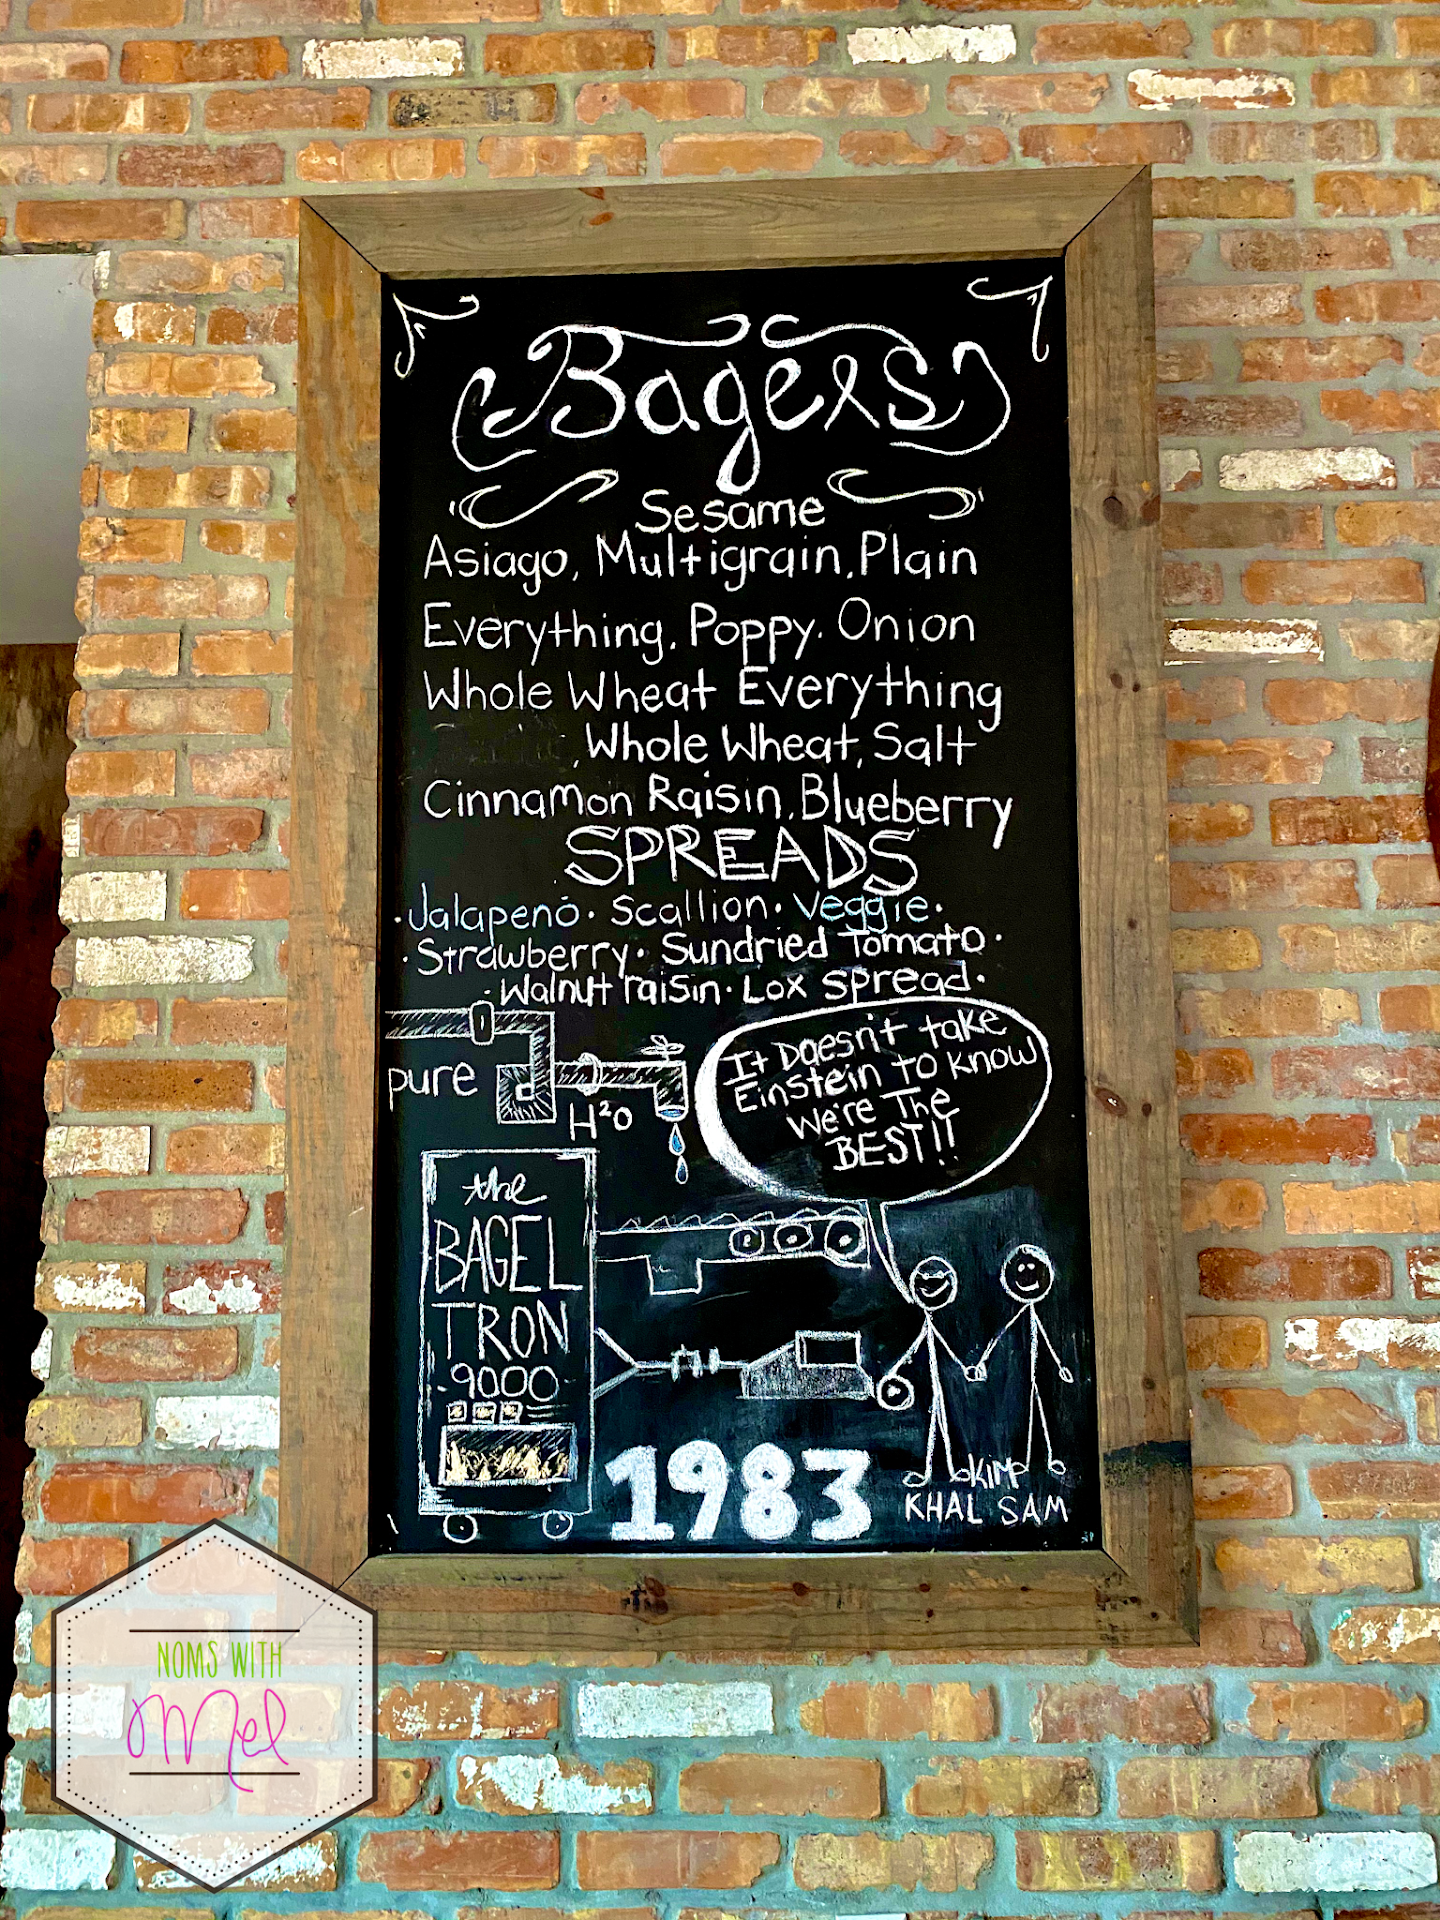 Bagels
Sesame
Asiago, Multigrain, Plain
Everything, Poppy. Onion
Whole Wheat Everything
, Whole Wheat, Salt
Cinnamon Raisin, Blueberry
SPREADS
· Jalapeno · Scallion · Veggie ·
· Strawberry · Sundried Tomato ·
· Walnut raisin · Lox spread ·
pure
H²O
It Doesn't take
Einstein to know
We're The
BEST!!
the
BAGEL
TRON
9000
1983
KIM
KHAL SAM
NOMS WITH
Mel